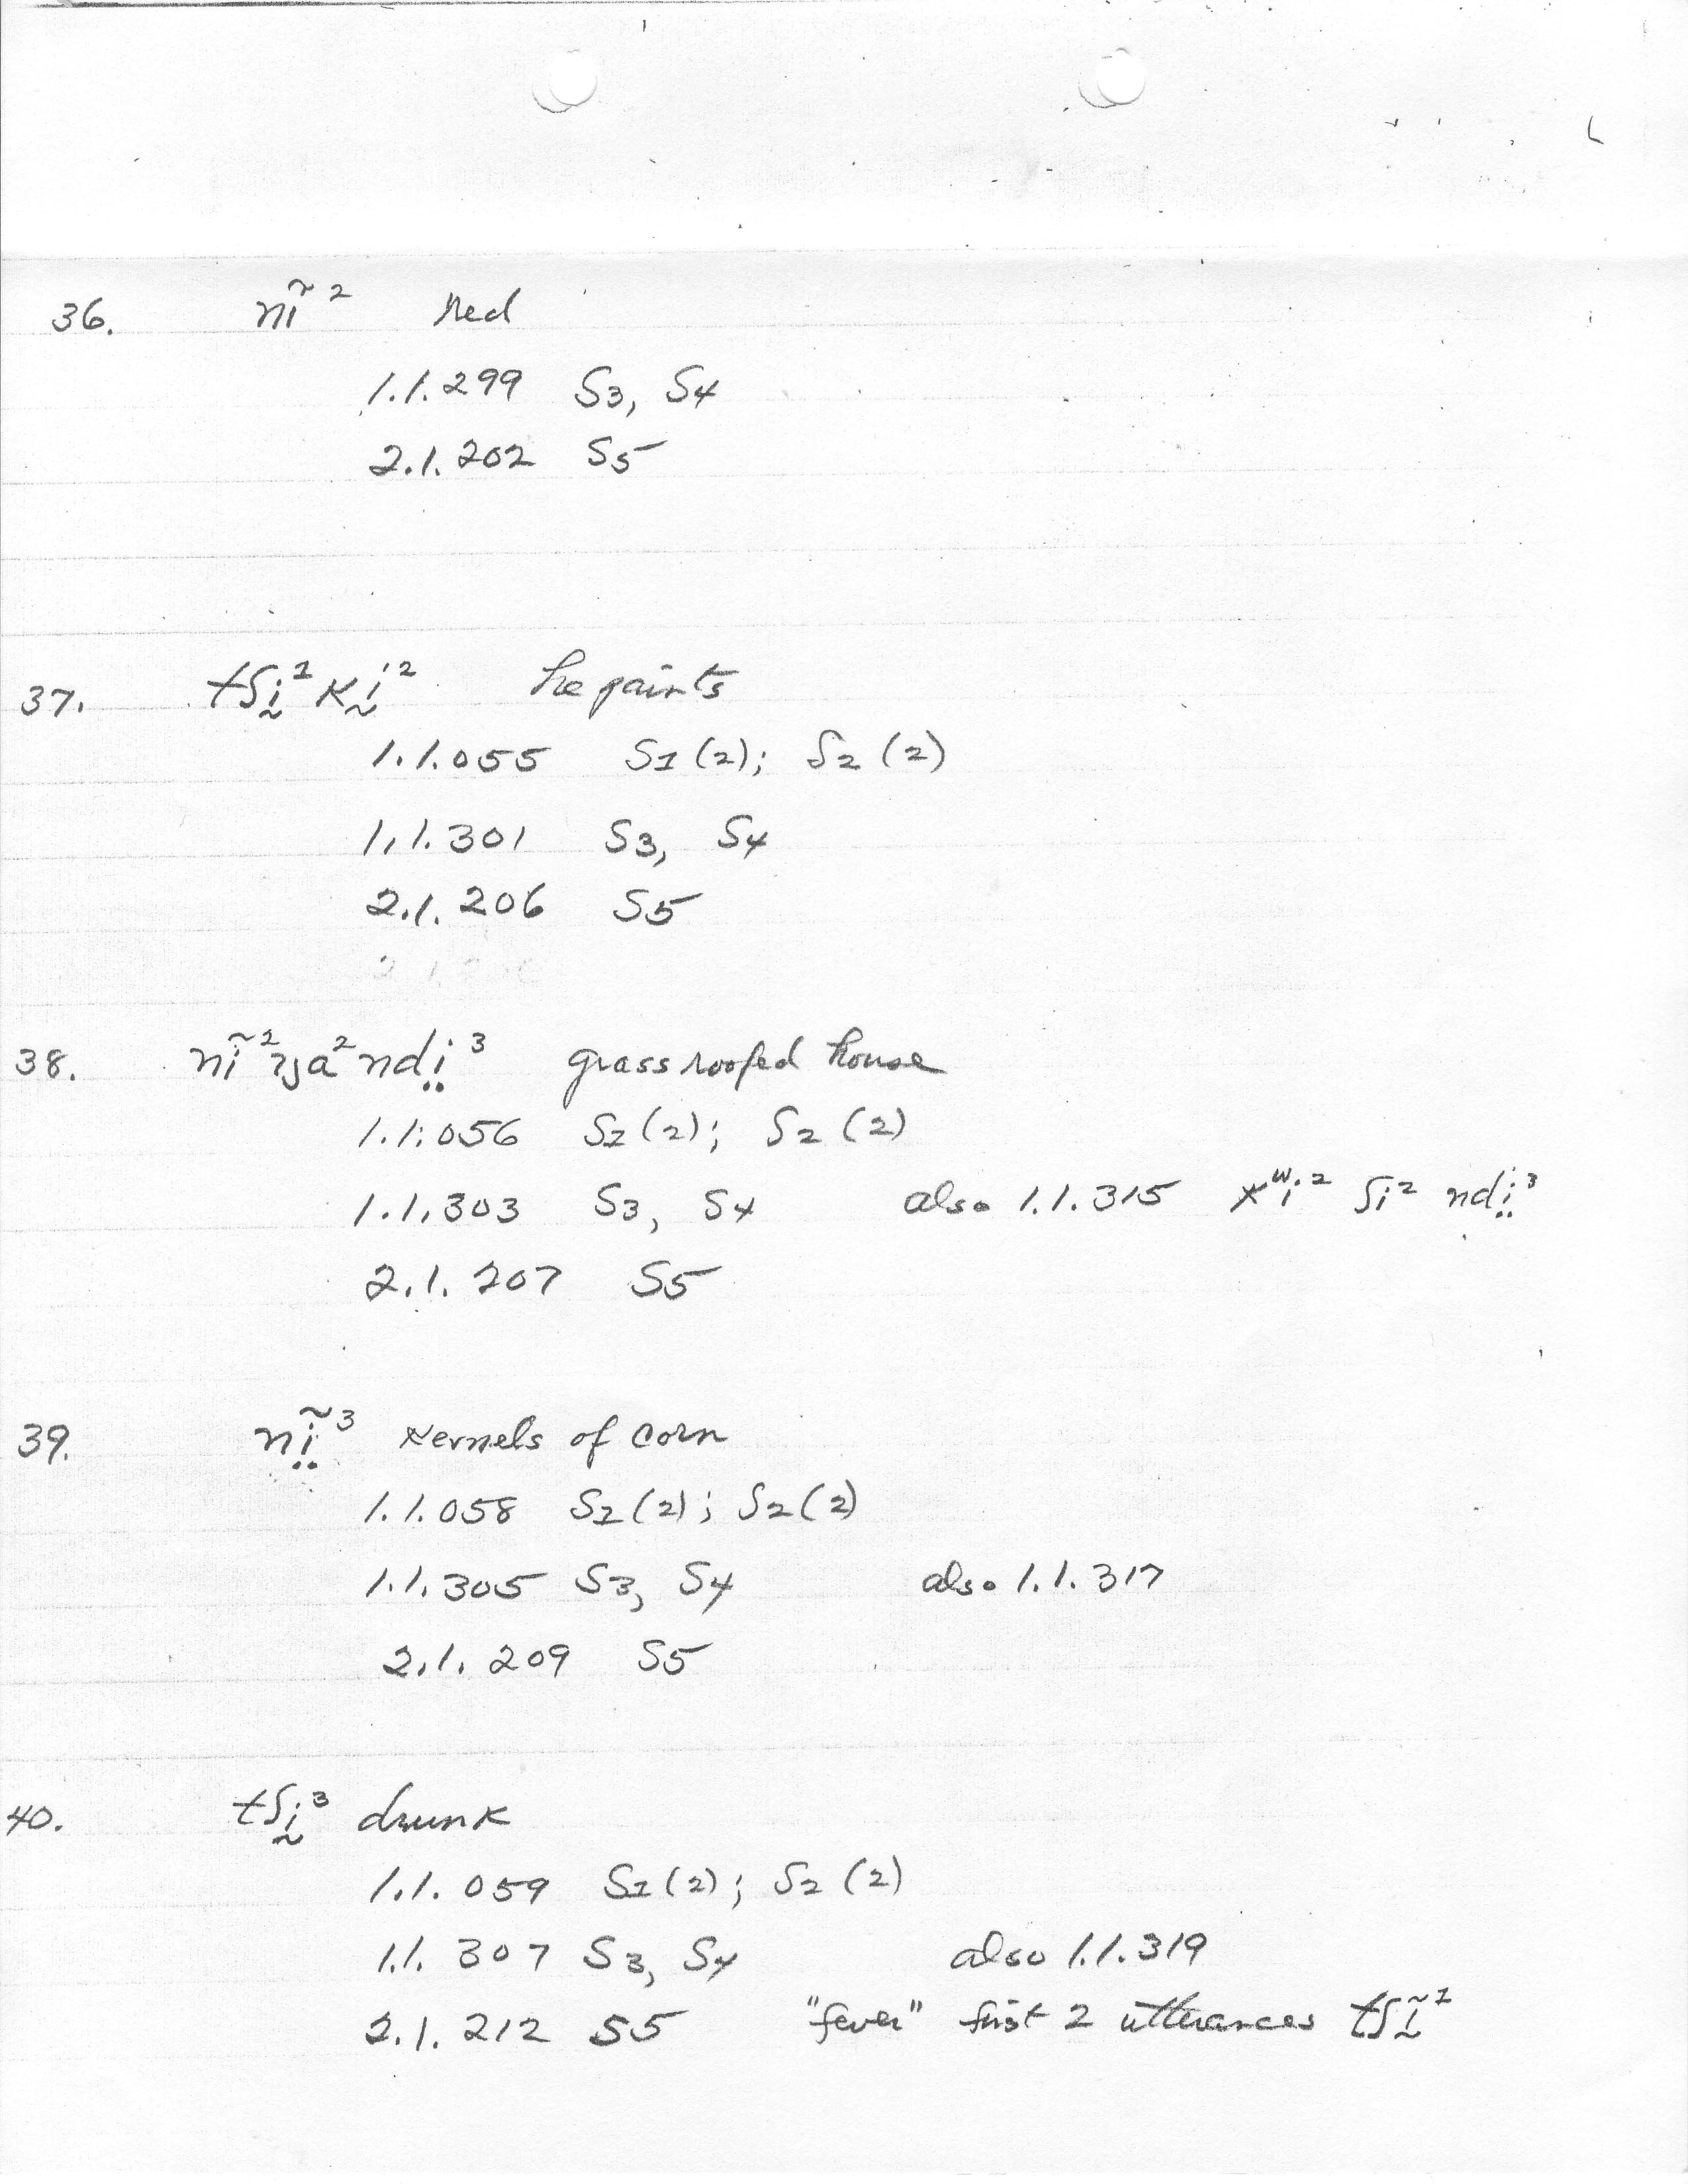 36. nĩ² red
1.1.299 S3, S4
2.1.202 S5
37. tʃḭ¹kḭ² he paints
1.1.055 S1 (2); S2 (2)
1.1.301 S3, S4
2.1.206 S5
38. nĩ²ʔja²ndi̤³ grass roofed house
1.1.056 S1 (2); S2 (2)
1.1.303 S3, S4 also 1.1.315 kʷi² ʃi² ndi̤³
2.1.207 S5
39. nĩ̤³ kernels of corn
1.1.058 S1 (2); S2 (2)
1.1.305 S3, S4 also 1.1.317
2.1.209 S5
40. tʃḭ³ drunk
1.1.059 S1 (2); S2 (2)
1.1.307 S3, S4 also 1.1.319
2.1.212 S5 "fever" first 2 utterances tʃĩ¹